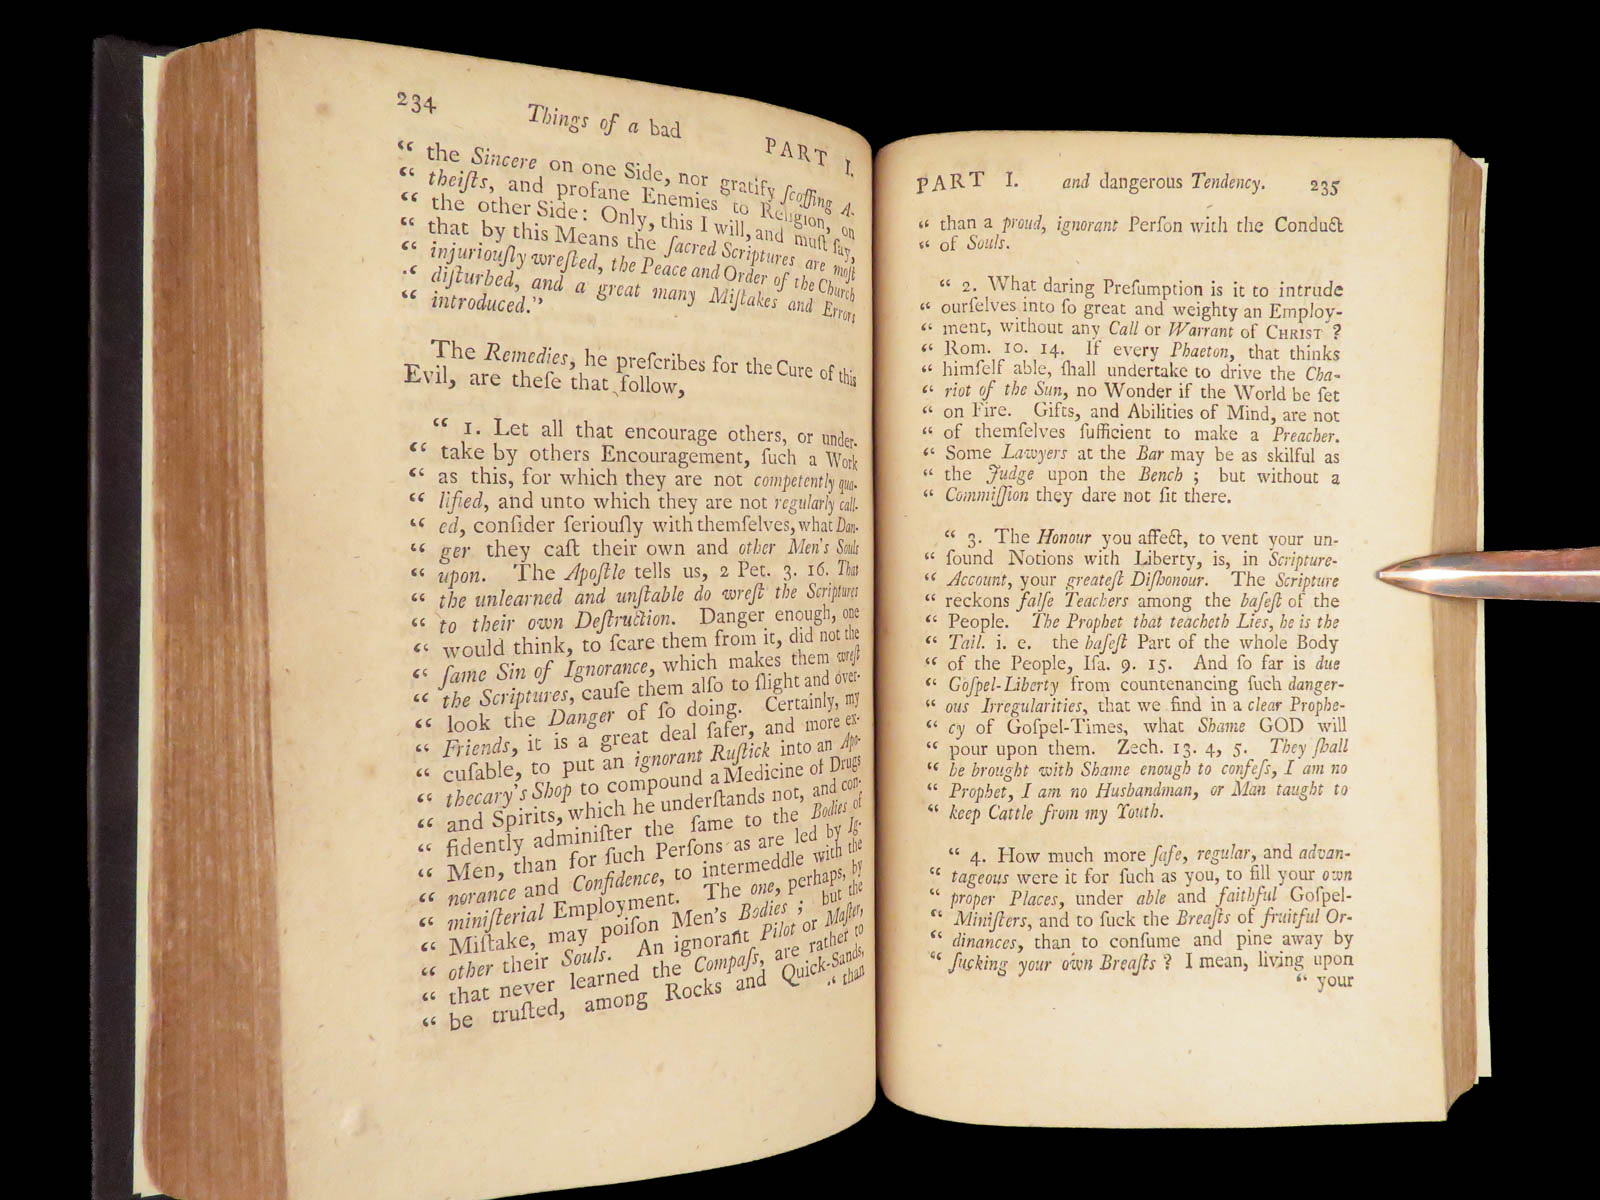 234 Things of a bad PART I.
“ the Sincere on one Side, nor gratify ſcoffing A-
“ theiſts, and profane Enemies to Religion, on
“ the other Side: Only, this I will, and muſt ſay,
“ that by this Means the ſacred Scriptures are moſt
“ injuriouſly wreſted, the Peace and Order of the Church
“ diſturbed, and a great many Miſtakes and Errors
“ introduced.”
The Remedies, he preſcribes for the Cure of this
Evil, are theſe that follow,
“ 1. Let all that encourage others, or under-
“ take by others Encouragement, ſuch a Work
“ as this, for which they are not competently qua-
“ lified, and unto which they are not regularly call-
“ ed, conſider ſeriouſly with themſelves, what Dan-
“ ger they caſt their own and other Men's Souls
“ upon. The Apoſtle tells us, 2 Pet. 3. 16. That
“ the unlearned and unſtable do wreſt the Scriptures
“ to their own Deſtruction. Danger enough, one
“ would think, to ſcare them from it, did not the
“ ſame Sin of Ignorance, which makes them wreſt
“ the Scriptures, cauſe them alſo to ſlight and over-
“ look the Danger of ſo doing. Certainly, my
“ Friends, it is a great deal ſafer, and more ex-
“ cuſable, to put an ignorant Ruſtick into an Apo-
“ thecary's Shop to compound a Medicine of Drugs
“ and Spirits, which he underſtands not, and con-
“ fidently adminiſter the ſame to the Bodies of
“ Men, than for ſuch Perſons as are led by Ig-
“ norance and Confidence, to intermeddle with the
“ miniſterial Employment. The one, perhaps, by
“ Miſtake, may poiſon Men's Bodies ; but the
“ other their Souls. An ignorant Pilot or Maſter,
“ that never learned the Compaſs, are rather to
“ be truſted, among Rocks and Quick-Sands,
“ than
PART I. and dangerous Tendency. 235
“ than a proud, ignorant Perſon with the Conduct
“ of Souls.
“ 2. What daring Preſumption is it to intrude
“ ourſelves into ſo great and weighty an Employ-
“ ment, without any Call or Warrant of CHRIST ?
“ Rom. 10. 14. If every Phaeton, that thinks
“ himſelf able, ſhall undertake to drive the Cha-
“ riot of the Sun, no Wonder if the World be ſet
“ on Fire. Gifts, and Abilities of Mind, are not
“ of themſelves ſufficient to make a Preacher.
“ Some Lawyers at the Bar may be as ſkilful as
“ the Judge upon the Bench ; but without a
“ Commiſſion they dare not ſit there.
“ 3. The Honour you affect, to vent your un-
“ ſound Notions with Liberty, is, in Scripture-
“ Account, your greateſt Diſhonour. The Scripture
“ reckons falſe Teachers among the baſeſt of the
“ People. The Prophet that teacheth Lies, he is the
“ Tail. i. e. the baſeſt Part of the whole Body
“ of the People, Iſa. 9. 15. And ſo far is due
“ Goſpel-Liberty from countenancing ſuch danger-
“ ous Irregularities, that we find in a clear Prophe-
“ cy of Goſpel-Times, what Shame GOD will
“ pour upon them. Zech. 13. 4, 5. They ſhall
“ be brought with Shame enough to confeſs, I am no
“ Prophet, I am no Husbandman, or Man taught to
“ keep Cattle from my Youth.
“ 4. How much more ſafe, regular, and advan-
“ tageous were it for ſuch as you, to fill your own
“ proper Places, under able and faithful Goſpel-
“ Miniſters, and to ſuck the Breaſts of fruitful Or-
“ dinances, than to conſume and pine away by
“ ſucking your own Breaſts ? I mean, living upon
“ your